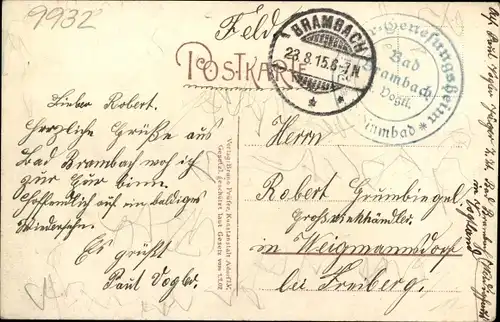 9932
Feld
POSTKARTE
BRAMBACH
23.8.15. 6-7N
Genesungsheim
Bad
Brambach
Vogtl.
Lieber Robert.
Herzliche Grüße aus
Bad Brambach wo ich
zur Kur binn.
Hoffendlich auf ein baldiges
Wiedersehn.
Es grüßt
Paul Vogler.
Verlag: Bruno Prüfer, Kunstanstalt Adorf i.V.
Gesetzl. geschützt laut Gesetz vom
Herrn
Robert Grumbiegel,
Großviehhändler.
in Weigmannsdorf
bei Freiberg.
Abs. Paul Vogler
Bad Brambach
im Vogtland